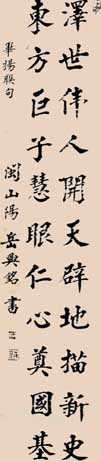 澤世伟人開天辟地描新史
東方巨子慧眼仁心奠國基
畢揚联句
岳興銘書